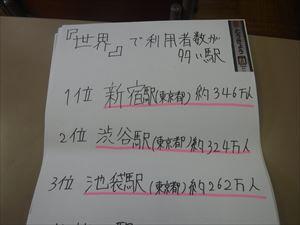 『世界』で利用者数が
多い駅
1位 新宿駅(東京都) 約346万人
2位 渋谷駅(東京都) 約324万人
3位 池袋駅(東京都) 約262万人